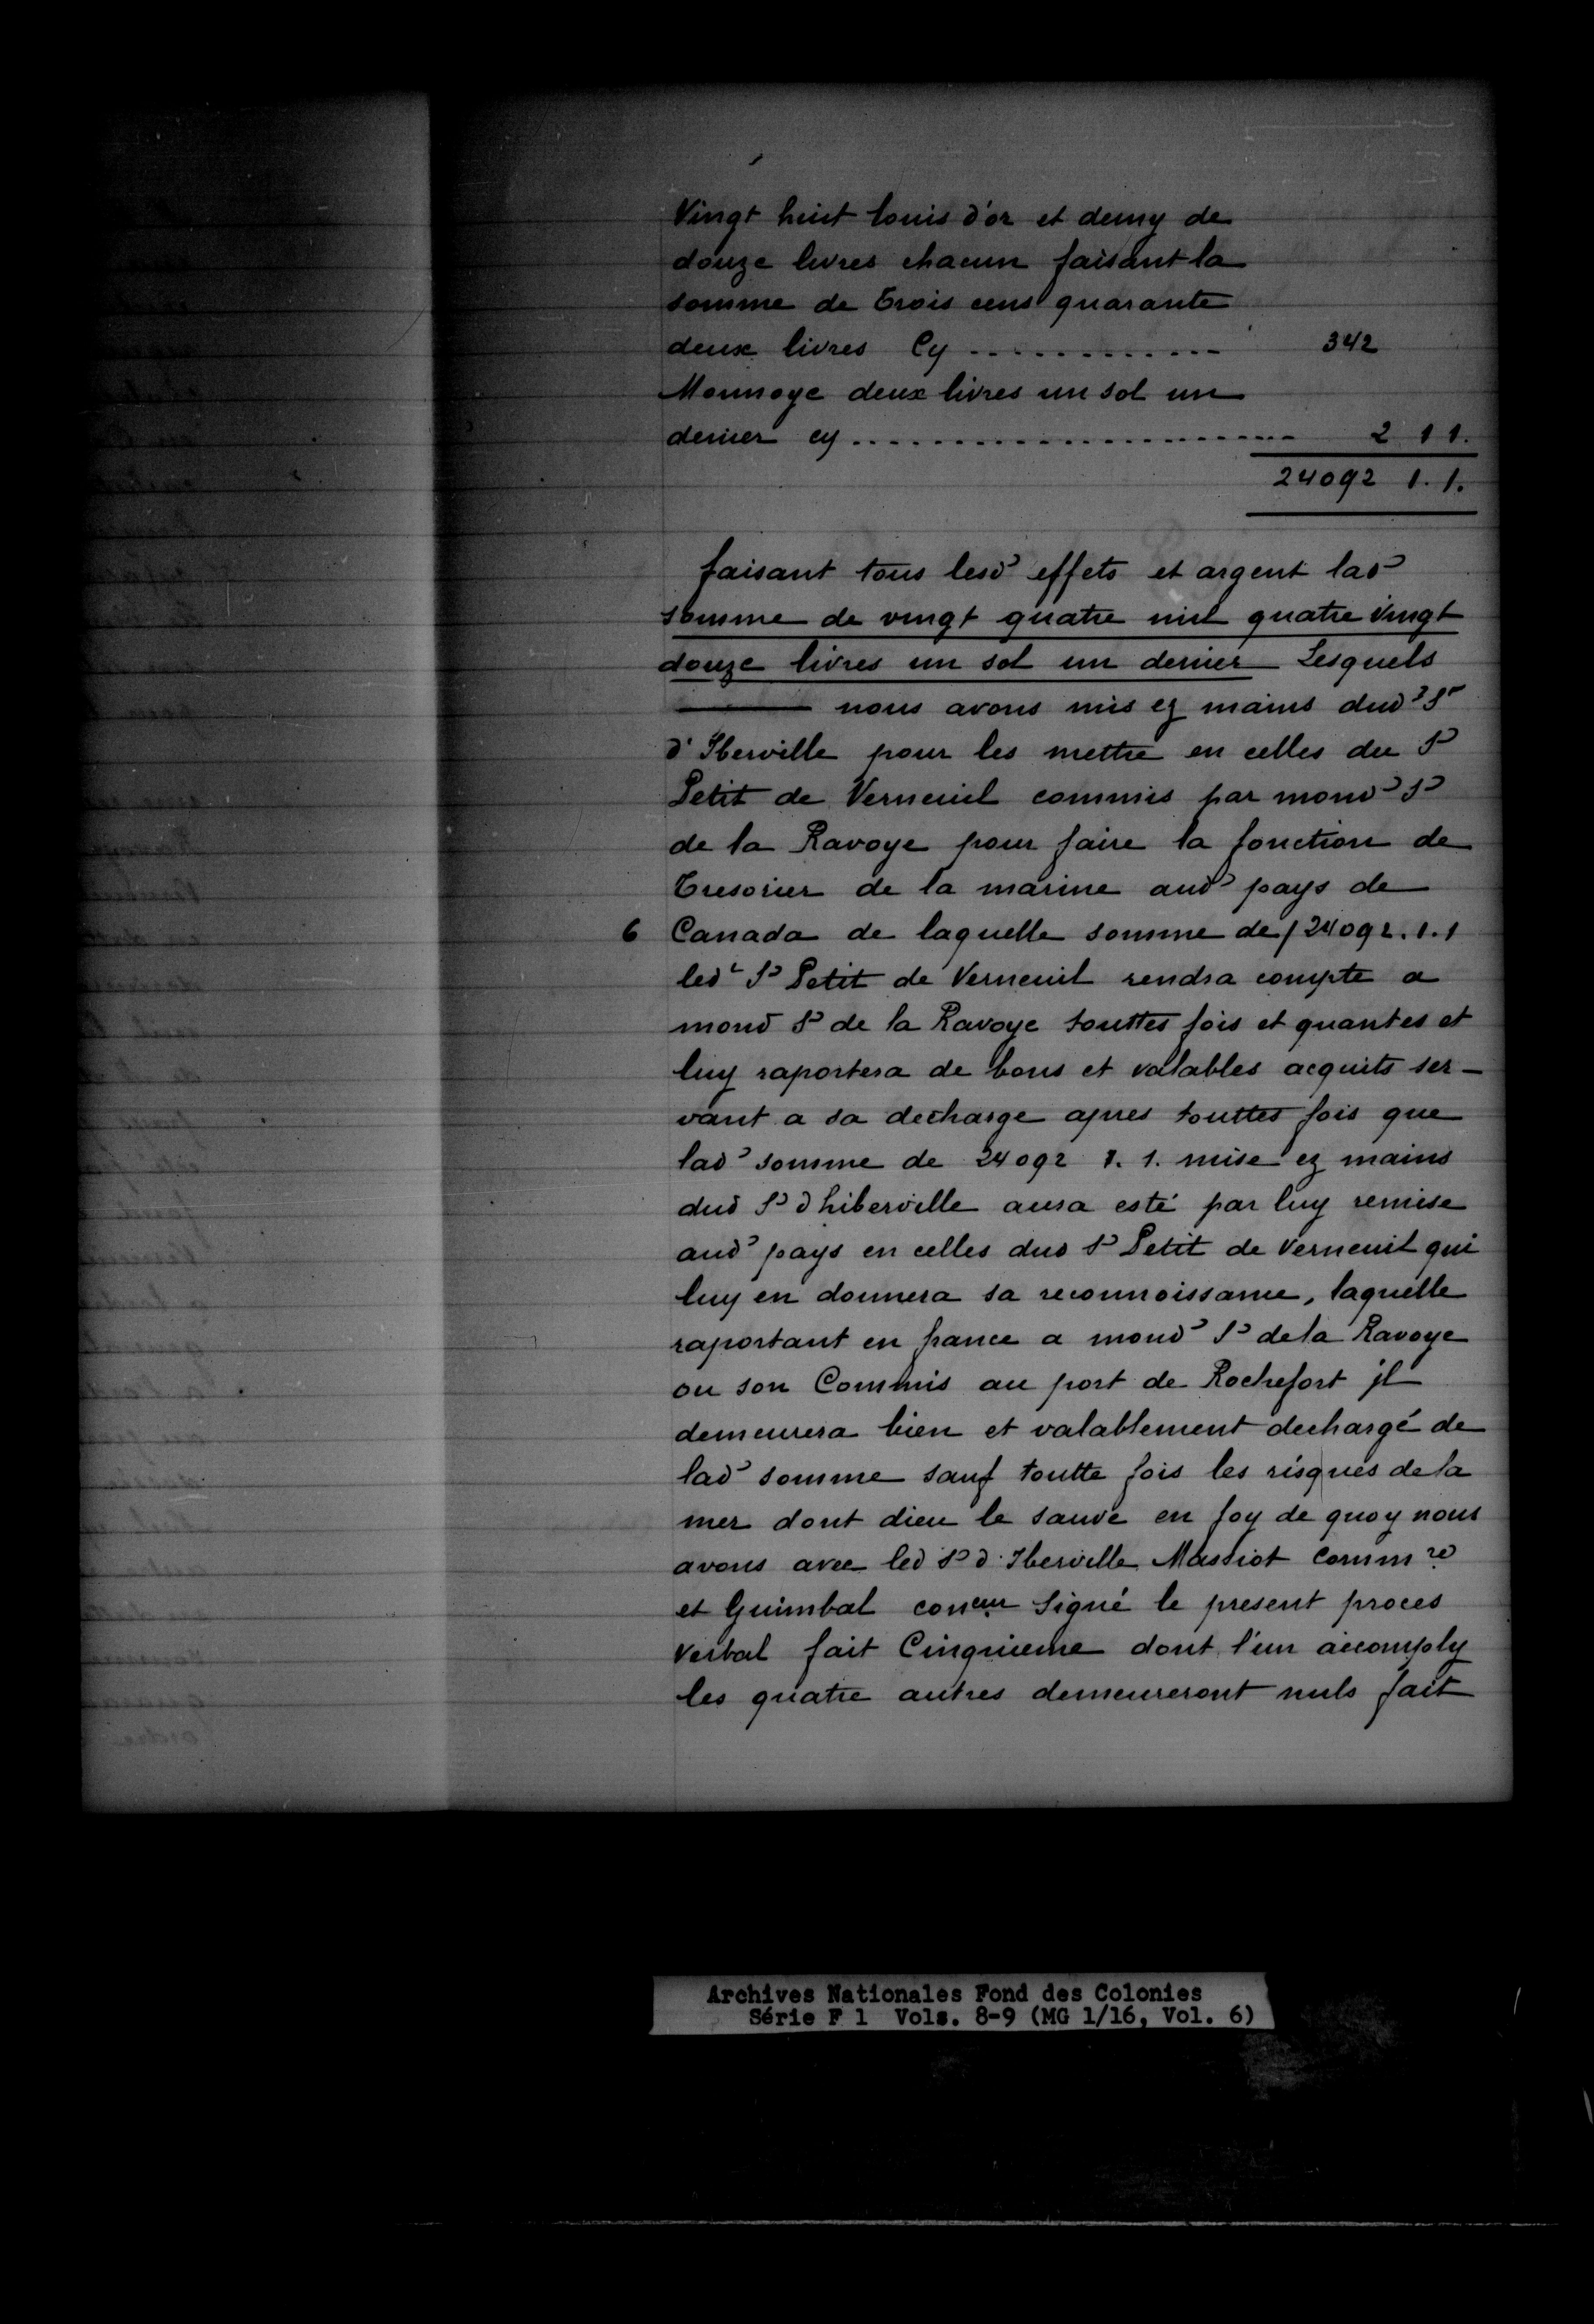 Vingt huit louis d'or et demy de
douze livres chacun faisant la
somme de trois cens quarante
deux livres Cy ............ 342
Monnoye deux livres un sol un
denier cy ........................ 2 1 1.
24092 1. 1.
faisant tous lesd effets et argent lad
somme de vingt quatre mil quatre vingt
douze livres un sol un denier Lesquels
——— nous avons mis ez mains dud Sr
d'Iberville pour les mettre en celles du Sr
Petit de Verneuil commis par mond Sr
de la Ravoye pour faire la fonction de
Tresorier de la marine aud pays de
6 Canada de laquelle somme de / 24092. 1. 1
led Sr Petit de Verneuil rendra compte a
mond Sr de la Ravoye touttes fois et quantes et
luy raportera de bons et valables acquits ser-
vant a sa decharge apres touttes fois que
lad somme de 24092 1. 1. mise ez mains
dud Sr d hiberville aura esté par luy remise
aud pays en celles dud Sr Petit de Verneuil qui
luy en donnera sa reconnoissance, laquelle
raportant en france a mond Sr de la Ravoye
ou son Commis au port de Rochefort jl
demeurera bien et valablement dechargé de
lad somme sauf toutte fois les risques de la
mer dont dieu le sauve en foy de quoy nous
avons avec led Sr d'Iberville Massiot Commre
et Guimbal coneur Signé le present proces
Verbal fait Cinquieme dont l'un accomply
les quatre autres demeureront nuls fait
Archives Nationales Fond des Colonies
Série F 1 Vols. 8-9 (MG 1/16, Vol. 6)